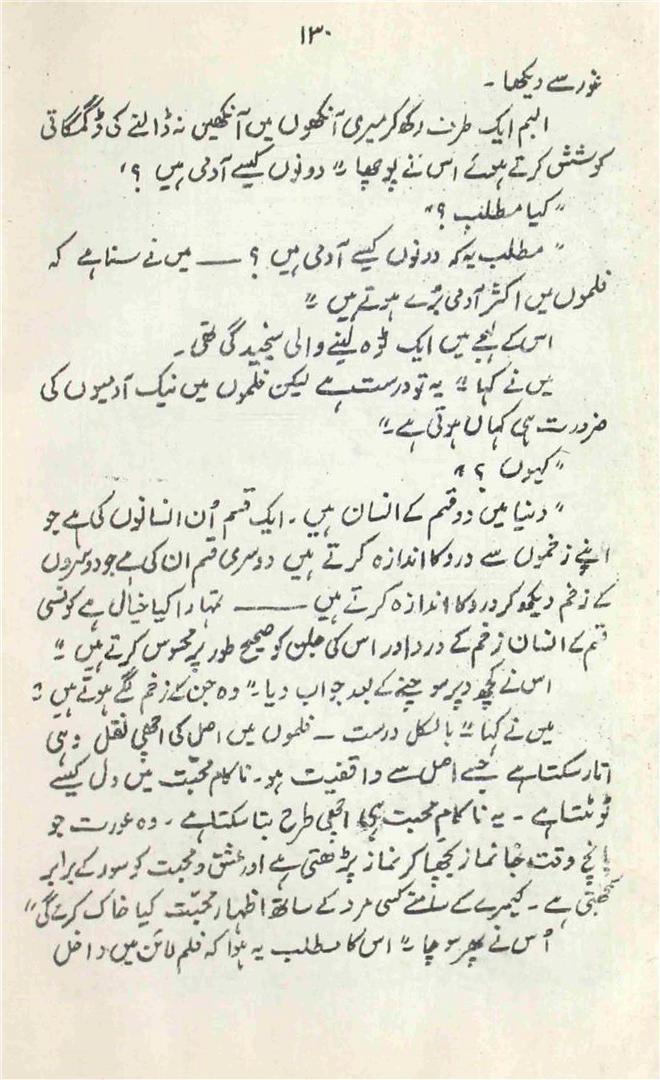 ۱۳۰
غور سے دیکھا ۔
البم ایک طرف رکھ کر میری آنکھوں میں آنکھیں نہ ڈالنے کی ڈگمگاتی
کوشش کرتے ہوئے اس نے پوچھا ۔" دونوں کیسے آدمی ہیں ؟"
"کیا مطلب ؟"
"مطلب یہ کہ دونوں کیسے آدمی ہیں ؟ —— میں نے سنا ہے کہ
فلموں میں اکثر آدمی بُرے ہوتے ہیں ۔"
اس کے لہجے میں ایک ٹوہ لینے والی سنجیدگی تھی ۔
میں نے کہا ۔" یہ تو درست ہے لیکن فلموں میں نیک آدمیوں کی
ضرورت ہی کہاں ہوتی ہے ۔"
"کیوں ؟"
"دنیا میں دو قسم کے انسان ہیں ۔ ایک قسم اُن انسانوں کی ہے جو
اپنے زخموں سے درد کا اندازہ کرتے ہیں دوسری قسم ان کی ہے جو دوسروں
کے زخم دیکھ کر درد کا اندازہ کرتے ہیں —— تمہارا کیا خیال ہے کونسی
قسم کے انسان زخم کے درد اور اس کی جلن کو صحیح طور پر محسوس کرتے ہیں ۔"
اس نے کچھ دیر سوچنے کے بعد جواب دیا ۔" وہ جن کے زخم لگے ہوتے ہیں ۔"
میں نے کہا ۔" بالکل درست ۔ فلموں میں اصل کی اچھی نقل وہی
اتار سکتا ہے جسے اصل سے واقفیت ہو ۔ ناکام محبّت میں دل کیسے
ٹوٹتا ہے ۔ یہ ناکامِ محبت ہی اچھی طرح بتا سکتا ہے ۔ وہ عورت جو
پانچ وقت جا نماز بچھا کر نماز پڑھتی ہے اور عشق و محبت کو سور کے برابر
سمجھتی ہے ۔ کیمرے کے سامنے کسی مرد کے ساتھ اظہارِ محبّت کیا خاک کرے گی"
اُس نے پھر سوچا ۔" اس کا مطلب یہ ہوا کہ فلم لائن میں داخل